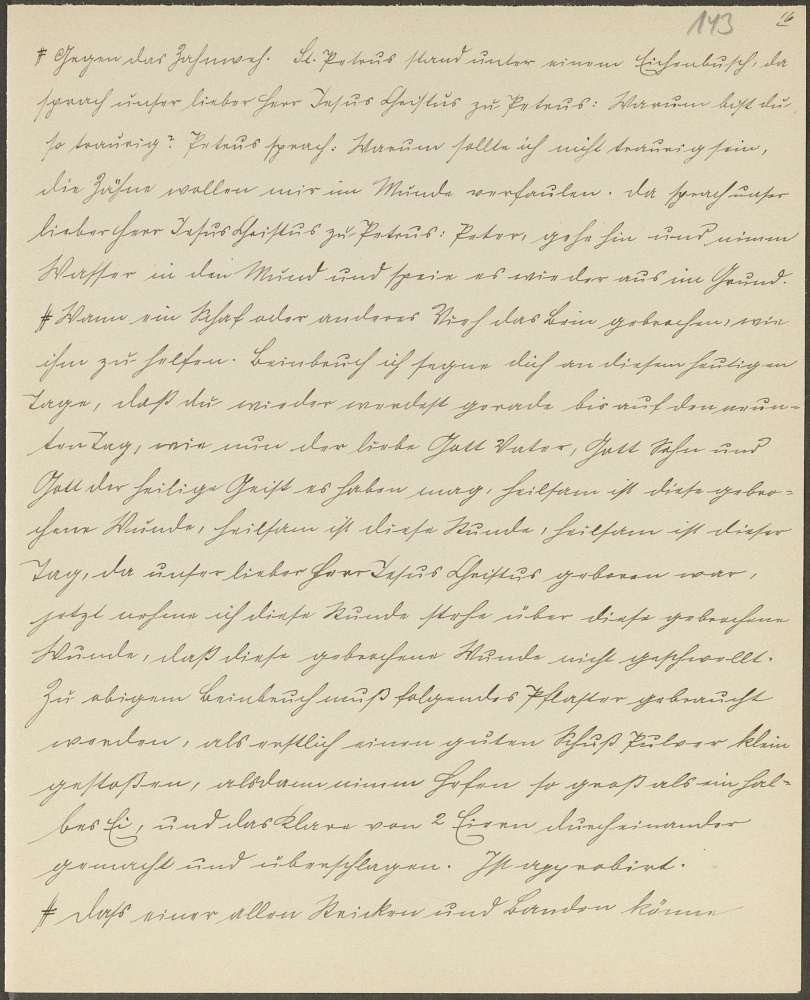 143 16
# Gegen das Zahnweh. St. Petrus stand unter einem Eichenbusch, da
sprach unser lieber Herr Jesus Christus zu Petrus: Warum bist du
so traurig? Petrus sprach: Warum sollte ich nicht traurig sein,
die Zähne wollen mir im Munde verfaulen. Da sprach unser
lieber Herr Jesus Christus zu Petrus: Peter, gehe hin und nimm
Wasser in den Mund und speie es wieder aus im Grund.
# Wann ein Schaf oder anderes Vieh das Bein gebrochen, wie
ihm zu helfen. Beinbruch ich segne dich an diesem heutigen
Tage, daß du wieder werdest gerade bis auf den neun-
ten Tag, wie nun der liebe Gott Vater, Gott Sohn und
Gott der heilige Geist es haben mag, heilsam ist diese gebro-
chene Wunde, heilsam ist diese Stunde, heilsam ist dieser
Tag, da unser lieber Herr Jesus Christus geboren war,
jetzt nehme ich diese Stunde stehe über diese gebrochene
Wunde, daß diese gebrochene Wunde nicht geschwellt.
Zu obigem Beinbruch muß folgendes Pflaster gebraucht
werden, als erstlich einen guten Schuß Pulver klein
gestoßen, alsdann nimm Hefen so groß als ein hal-
bes Ei, und das Klare von 2 Eiern durcheinander
gemacht und überschlagen. Ist approbirt.
# Dass einer allen Stricken und Banden könne